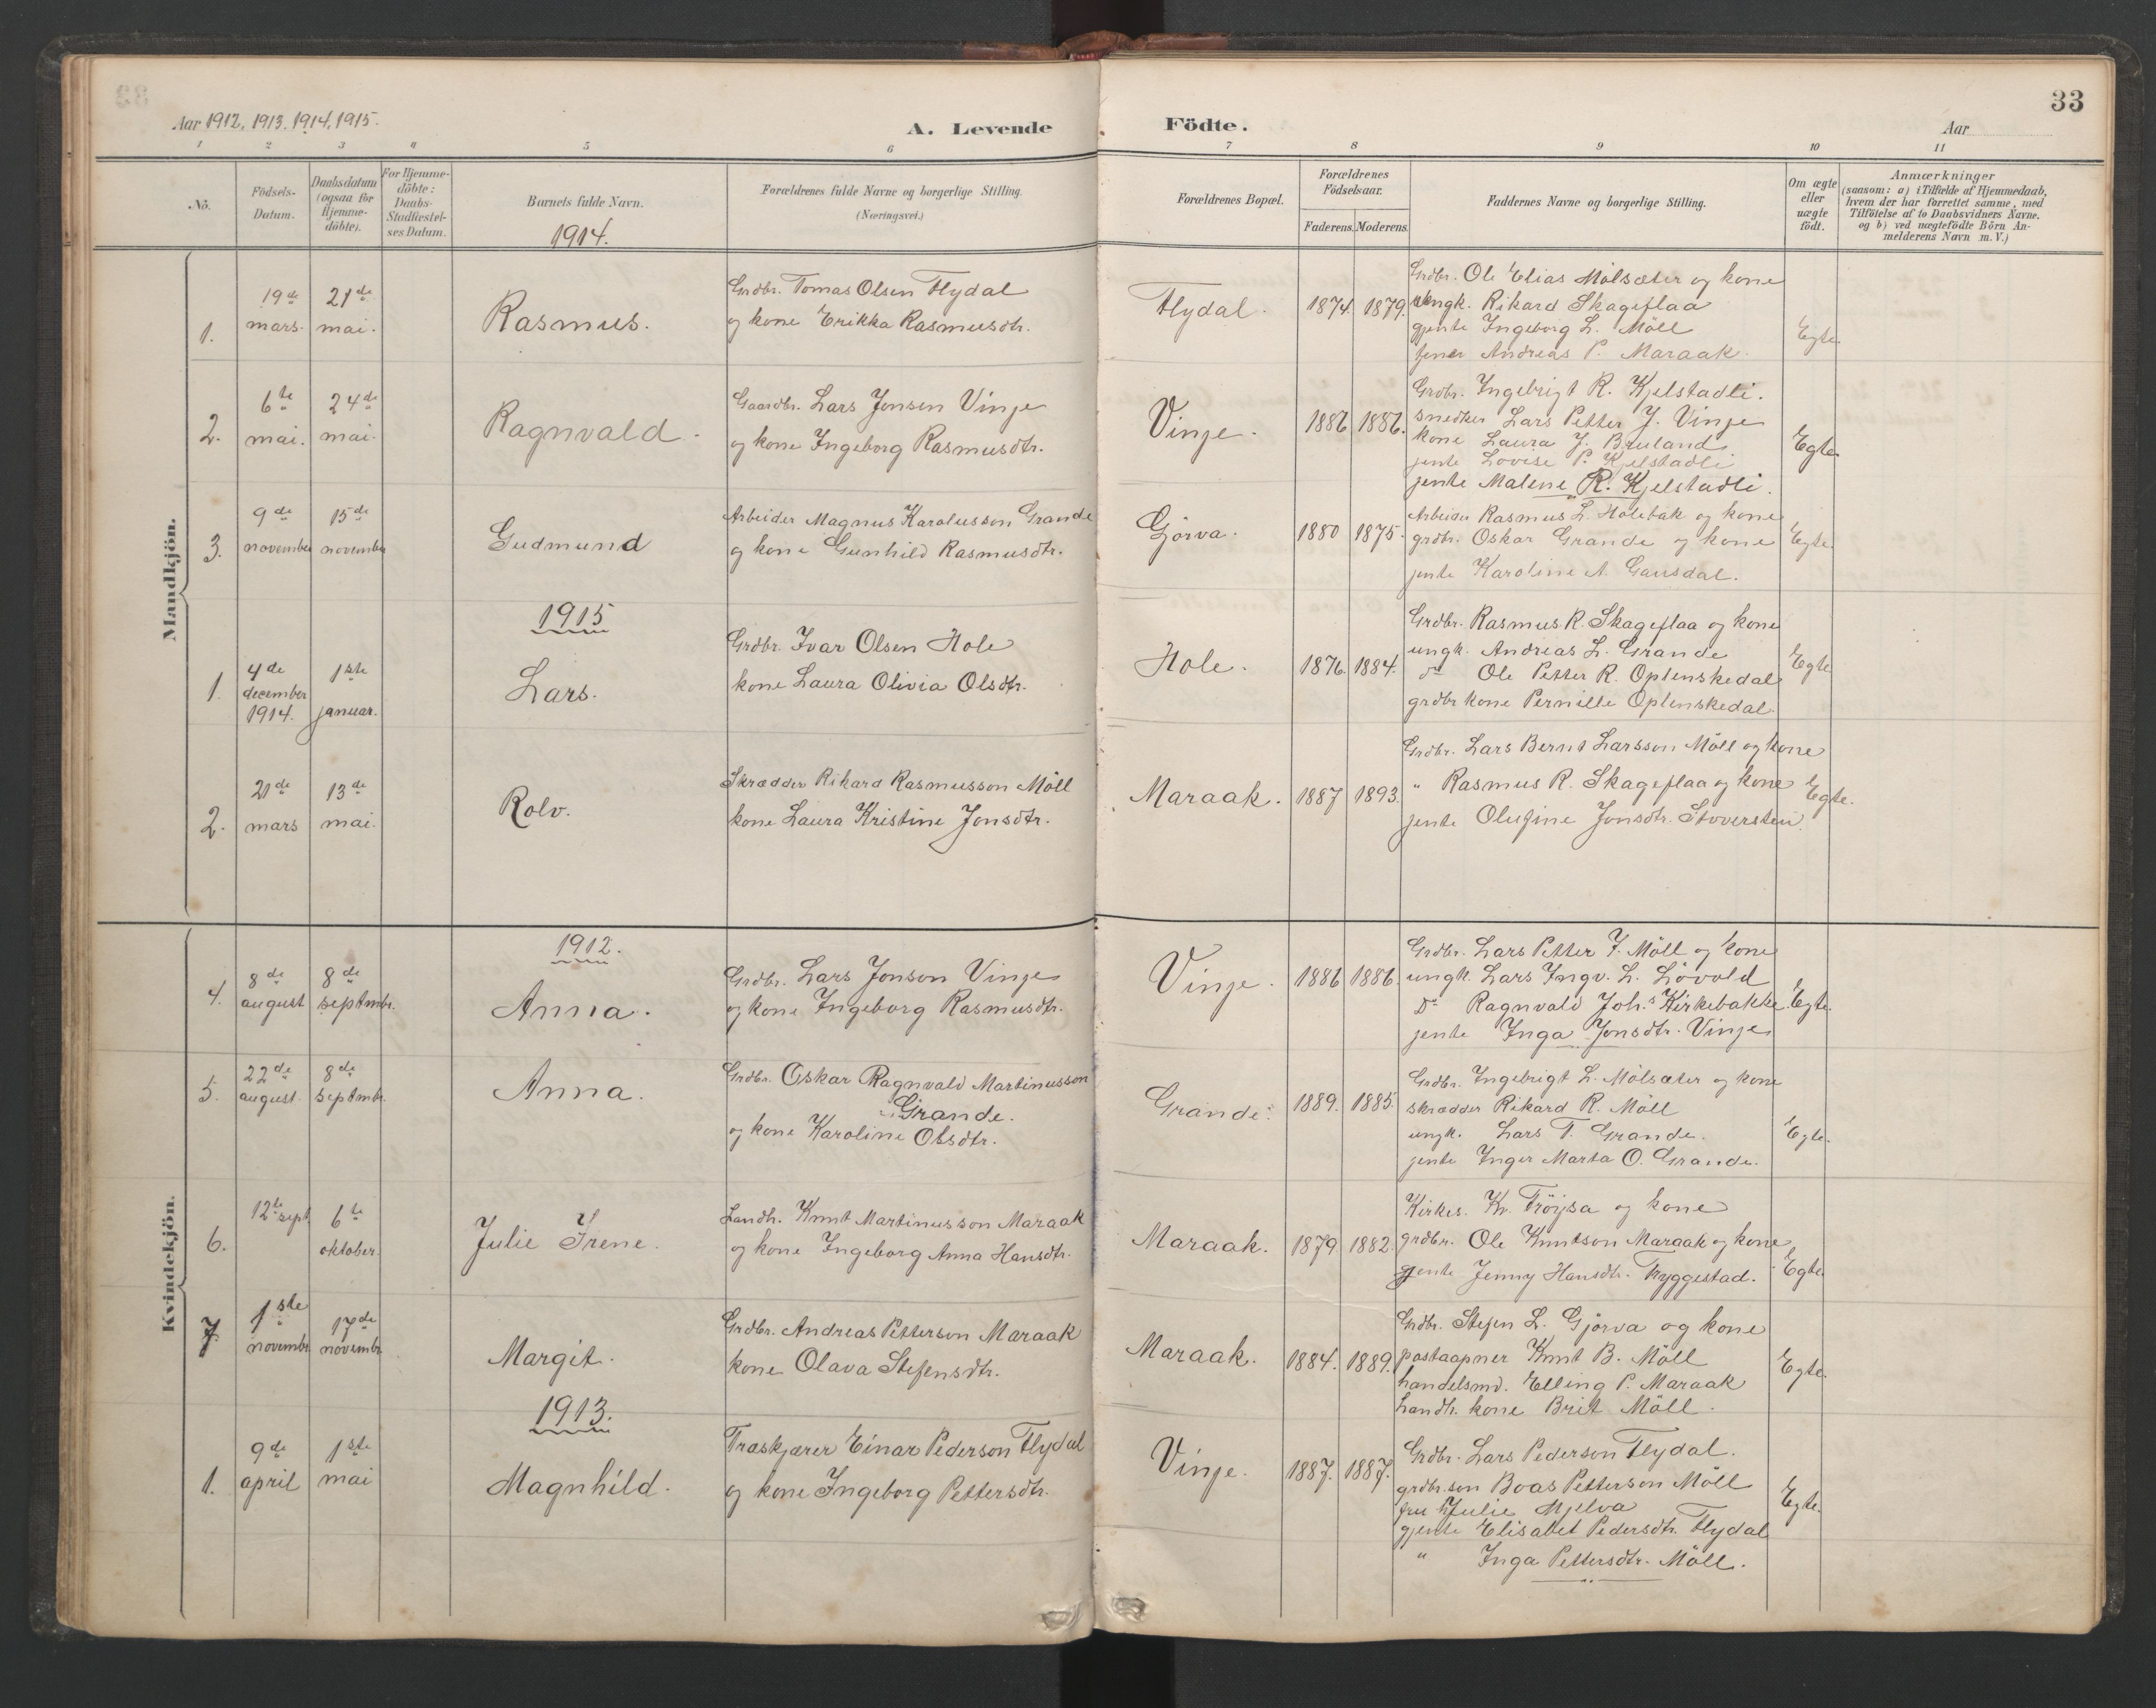 33
Aar 1912, 1913, 1914, 1915.
A. Levende Födte.
Aar
1 2 3 4 5 6 7 8 9 10 11
No.
Födsels-
Datum.
Daabsdatum
(ogsaa for
Hjemme-
döbte).
For Hjemme-
döbte:
Daabs-
Stadfæstel-
ses Datum.
Barnets fulde Navn.
1914.
Forældrenes fulde Navne og borgerlige Stilling.
(Næringsvei.)
Forældrenes Bopæl.
Forældrenes
Födselsaar.
Faderens. Moderens.
Faddernes Navne og borgerlige Stilling.
Om ægte
eller
uægte
födt.
Anmærkninger
(saasom: a) i Tilfælde af Hjemmedaab,
hvem der har forrettet samme, med
Tilföielse af to Daabsvidners Navne.
og b) ved uægtefödte Börn An-
melderens Navn m. V.)
Mandkjön.
1.
19de
mars.
21de
mai.
Rasmus.
Grdbr. Tomas Olsen Flydal
og kone Erikka Rasmusdtr.
Flydal.
1874. 1879.
Grdbr. Ole Elias Mölsæter og kone
ungk. Rikard Skageflaa
gjente Ingeborg L. Möll
Andreas P. Maraak.
Egte.
2.
6te
mai.
24de
mai.
Ragnvald.
Gaardbr. Lars Jonsen Vinje
og kone Ingeborg Rasmusdtr.
Vinje.
1886 1886.
Grdbr. Ingebrigt R. Kjelstadli.
snedker Lars Petter J. Vinje
kone Laura J. Bruland
jente Lovise P. Kjelstadli
jente Malene R. Kjelstadli.
Egte.
3.
9de
november
15de
november
Gudmund
Arbeider Magnus Karolusson Grande
og kone Gunhild Rasmusdtr.
Gjörva.
1880 1875.
Arbeider Rasmus L. Holebak og kone
grdbr. Oskar Grande og kone
jente Karoline A. Gausdal.
Egte.
1915
1.
4de
december
1914.
1ste
januar.
Lars.
Grdbr. Ivar Olsen Hole
kone Laura Olivia Olsdtr.
Hole.
1876. 1884.
Grdbr. Rasmus R. Skageflaa og kone
ungk. Andreas L. Grande
do Ole Petter R. Oplenskedal
grdbr kone Pernille Oplenskedal.
Egte
2.
21de
mars
13de
mai.
Rolv.
Skrædder Rikard Rasmusson Möll
kone Laura Kristine Jonsdtr.
Maraak.
1887 1893.
Grdbr. Lars Bernt Larsson Möll og kone
" Rasmus R. Skageflaa og kone
jente Olufine Jonsdtr. Stoverstein.
Egte.
Kvindekjön.
1912.
4.
8de
august
8de
septmbr.
Anna.
Grdbr. Lars Jonson Vinje
og kone Ingeborg Rasmusdtr.
Vinje.
1886 1886.
Grdbr. Lars Petter J. Möll og kone
ungk. Lars Ingv. L. Lövold
Do Ragnvald Joh.s Kirkebakke.
jente Inga Jonsdtr. Vinje
Egte.
5.
22de
august.
8de
septmbr.
Anna.
Grdbr. Oskar Ragnvald Martinusson
Grande.
og kone Karoline Olsdtr.
Grande.
1889. 1885
Grdbr. Ingebrigt L. Mölsæter og kone
skrædder Rikard R. Möll
ungk. Lars T. Grande.
jente Inger Marta O. Grande.
Egte.
6.
12te sept
6te
oktober.
Julie Irene.
Landh. Knut Martinusson Maraak
og kone Ingeborg Anna Hansdtr.
Maraak.
1879 1882.
Kirkes. Kr. Tröysa og kone
grdbr. Ole Knutson Maraak og kone
gjente Jenny Hansdtr. Tryggestad.
Egte.
7.
1ste
novembr
17de
novembr
Margit.
Grdbr. Andreas Petterson Maraak
kone Olava Stefensdtr.
Maraak.
1884. 1889.
Grdbr. Stefen L. Gjörva og kone
postaapner Knut B. Möll
handelsmd. Elling P. Maraak
Landh. kone Brit Möll.
Egte.
1913.
1.
9de
april
1ste
mai
Magnhild.
Træskjærer Einar Pederson Flydal
og kone Ingeborg Pettersdtr.
Vinje.
1887. 1887.
Grdbr. Lars Pederson Flydal.
grdbr.son Boas Petterson Möll
fru Julie Mjelva
gjente Elisabet Pedersdtr. Flydal
" Inga Pettersdtr. Möll.
Egte.